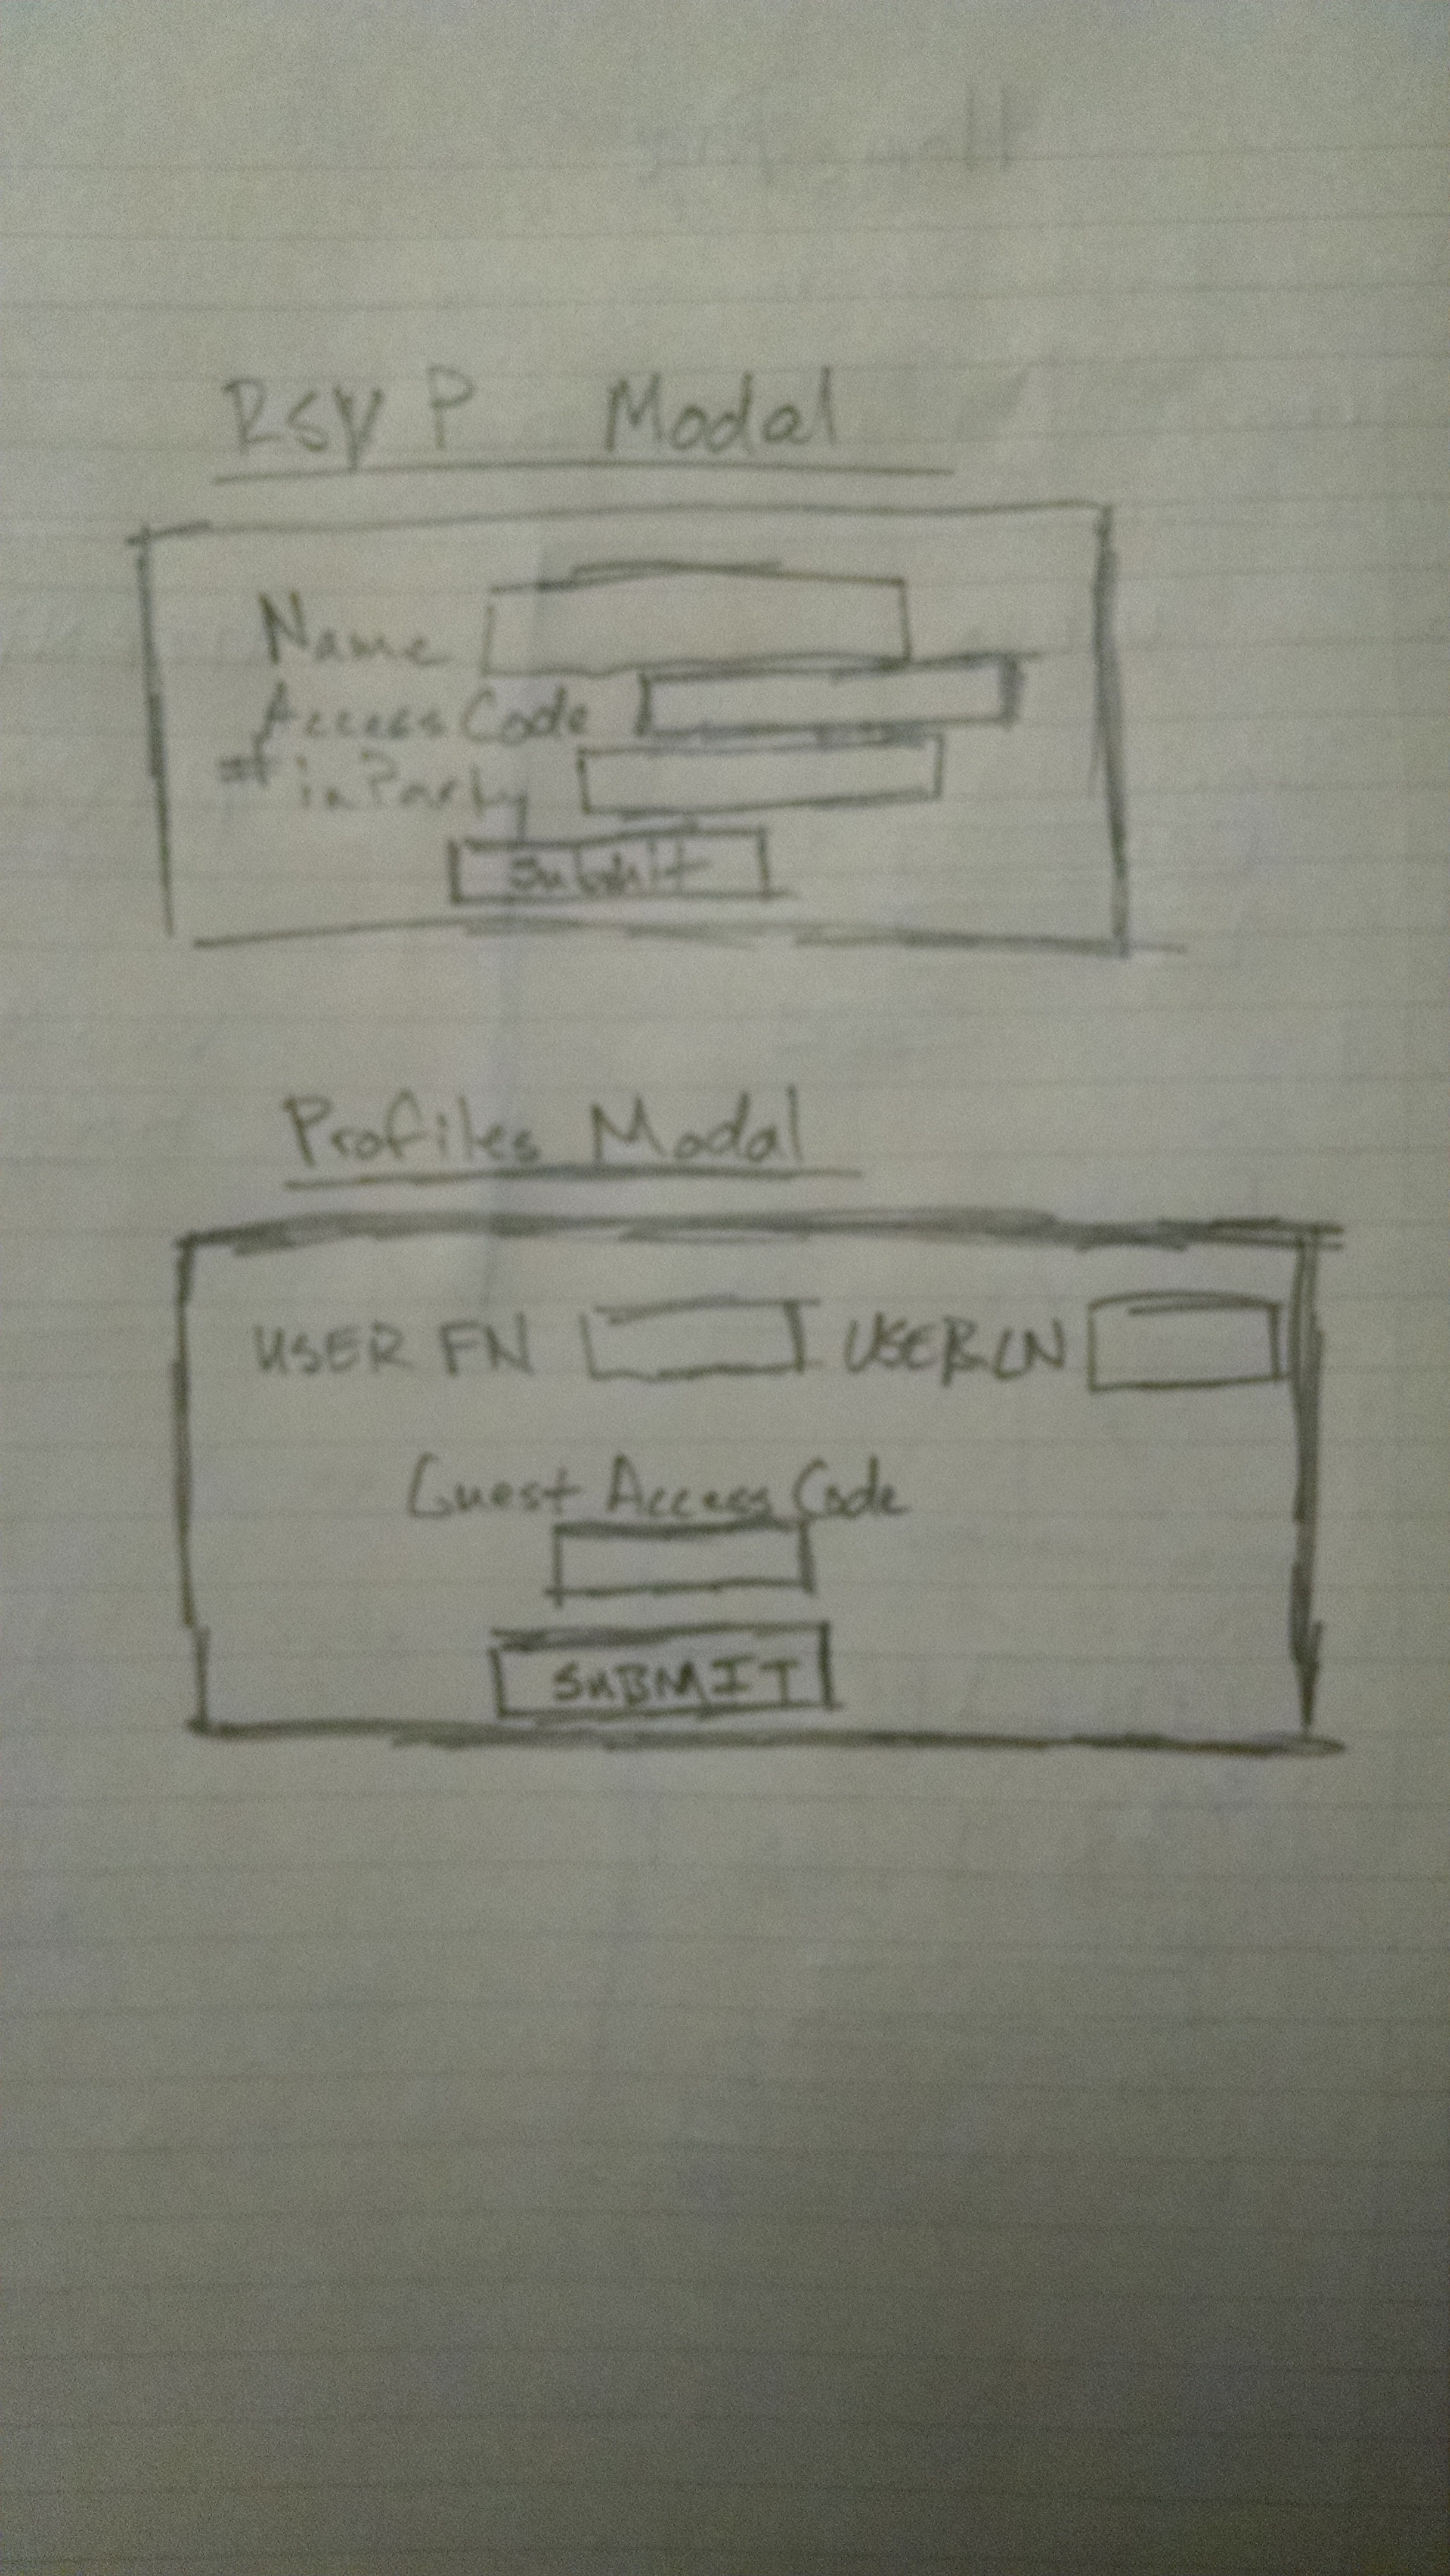 RSVP Modal
Name
Access Code
# in Party
Submit
Profiles Modal
USER FN USER LN
Guest Access Code
SUBMIT